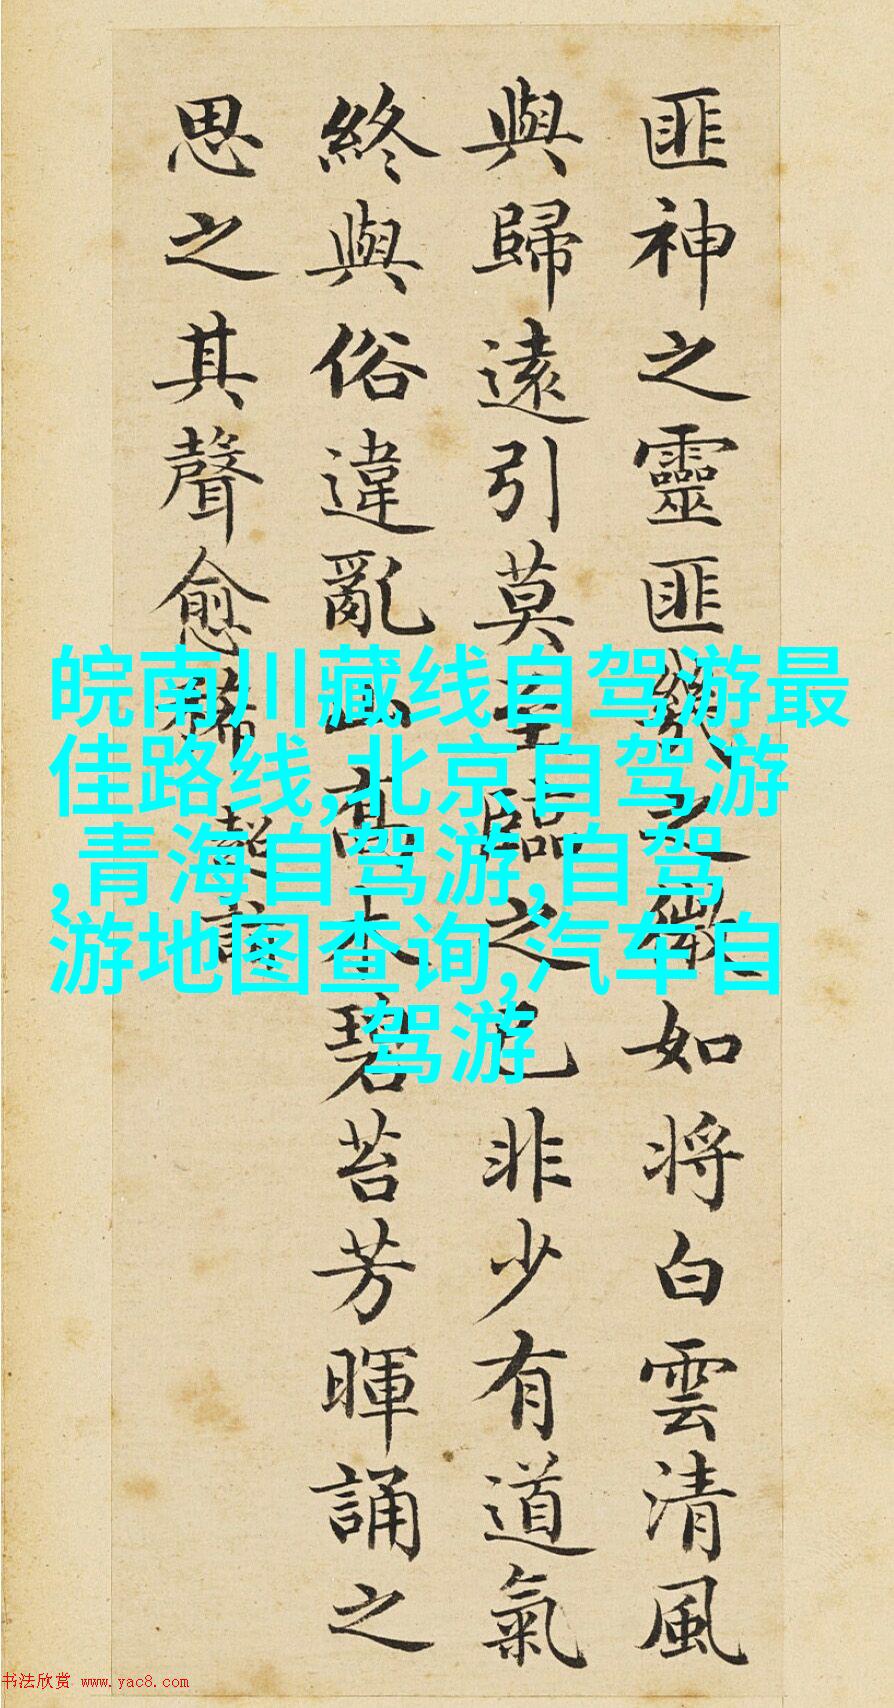 匪神之靈匪幾之微如將白雲清風
與歸遠引莫至臨之已非少有道氣
終與俗違亂山高木碧苔芳暉誦之
思之其聲愈稀 超詣
皖南川藏线自驾游最
佳路线,北京自驾游
,青海自驾游,自驾
游地图查询,汽车自
驾游
书法欣赏 www.yac8.com